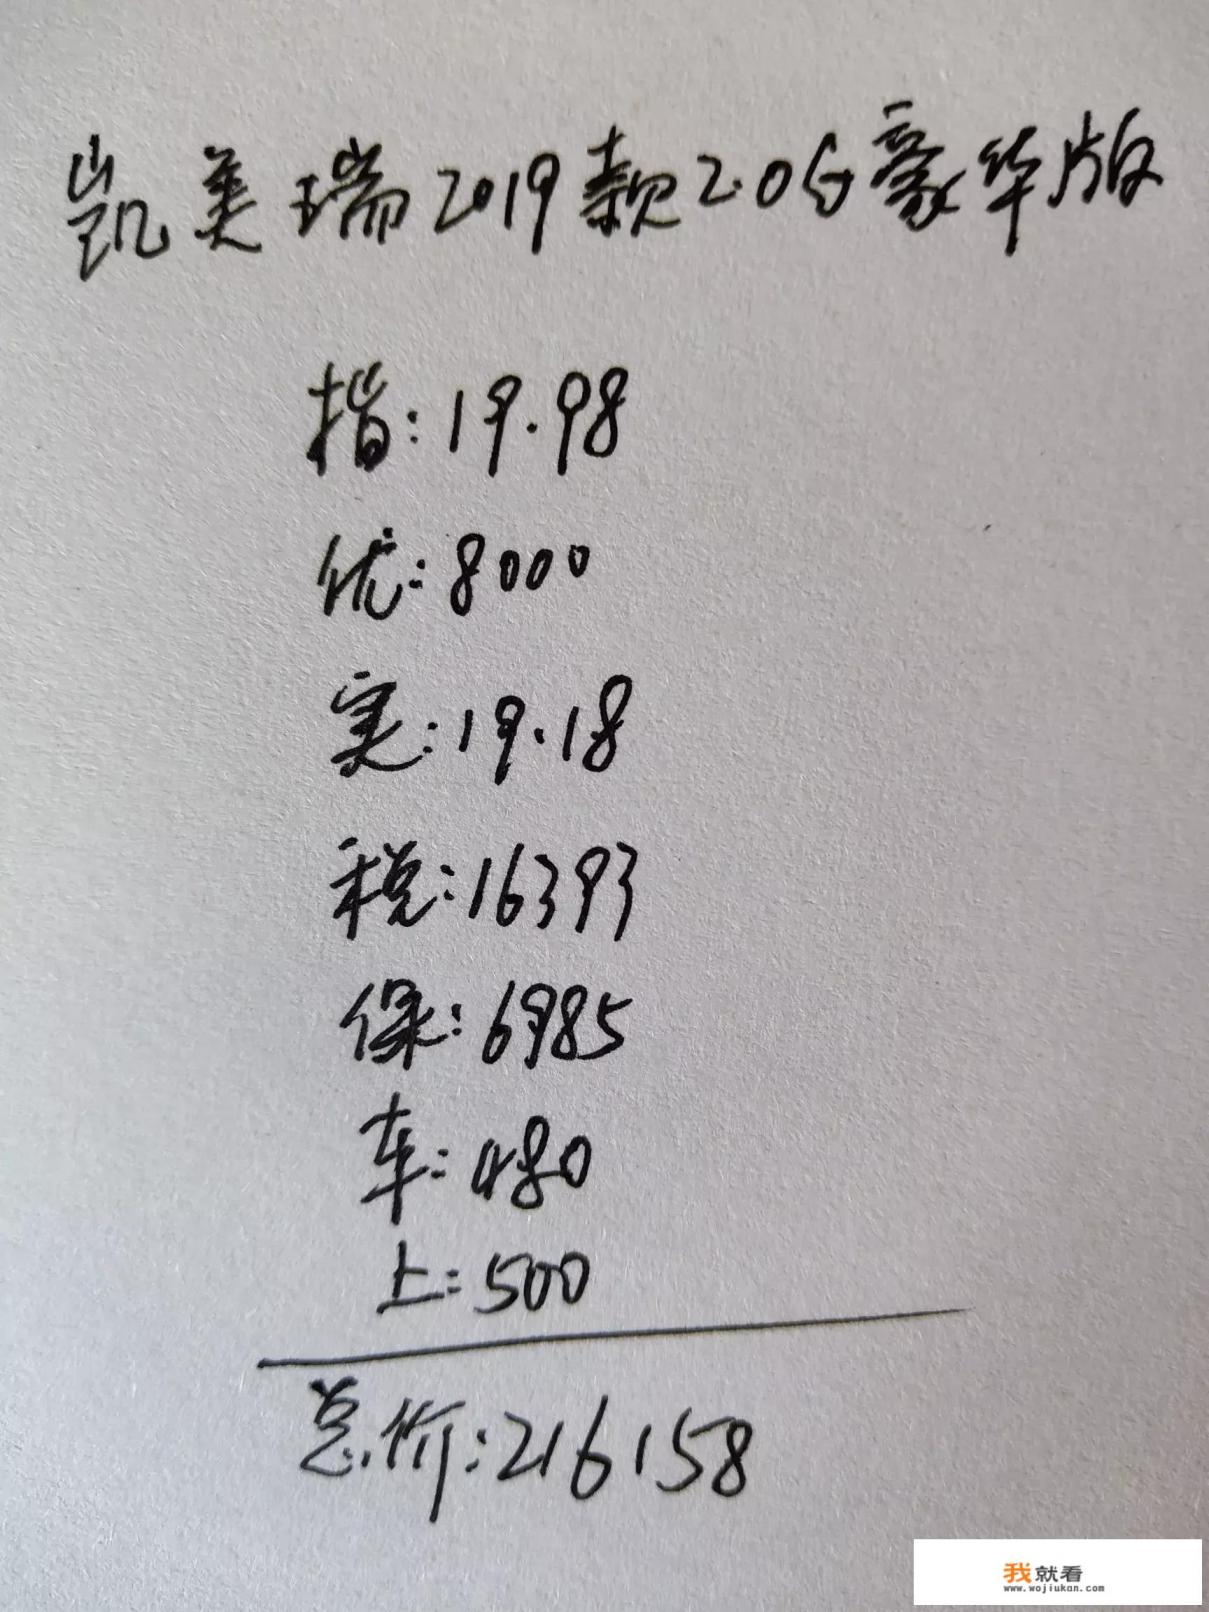 凯美瑞2019款2.0G豪华版
指:19.98
优:8000
实:19.18
税:16393
保:6985
车:480
上:500
总价:216158
我就看
www.wojiukan.com